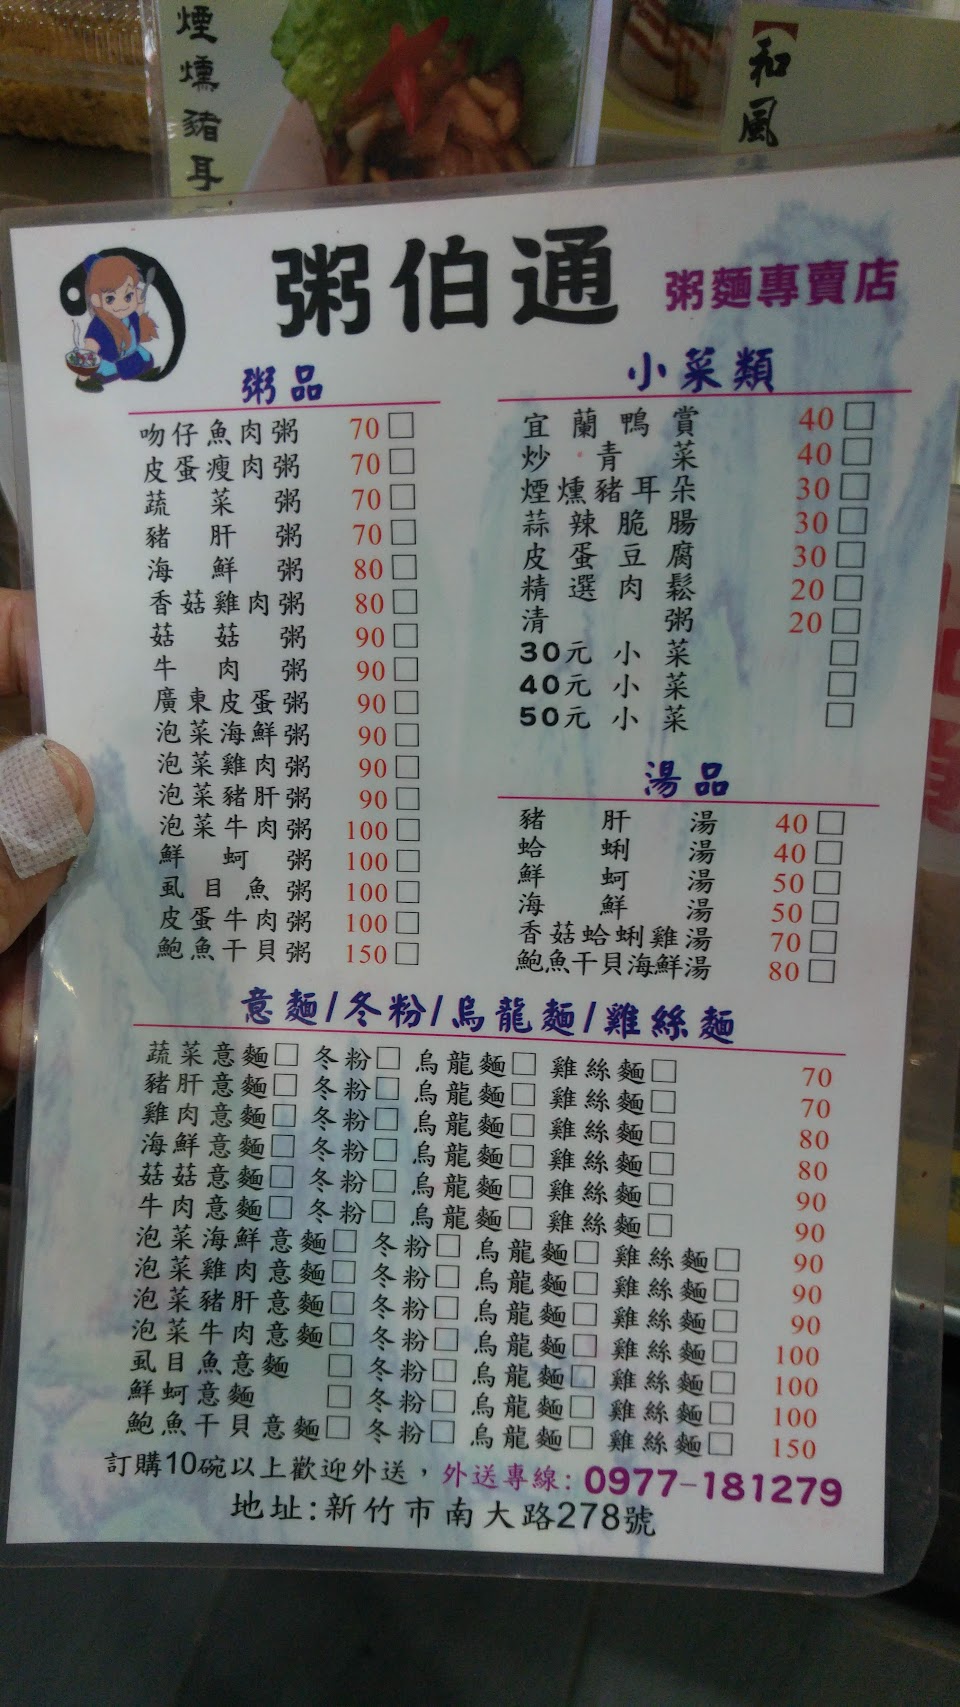 煙燻豬耳
【和風
粥伯通 粥麵專賣店
粥品
吻仔魚肉粥 70□
皮蛋瘦肉粥 70□
蔬菜粥 70□
豬肝粥 70□
海鮮粥 80□
香菇雞肉粥 80□
菇菇粥 90□
牛肉粥 90□
廣東皮蛋粥 90□
泡菜海鮮粥 90□
泡菜雞肉粥 90□
泡菜豬肝粥 90□
泡菜牛肉粥 100□
鮮蚵粥 100□
虱目魚粥 100□
皮蛋牛肉粥 100□
鮑魚干貝粥 150□
小菜類
宜蘭鴨賞 40□
炒青菜 40□
煙燻豬耳朵 30□
蒜辣脆腸 30□
皮蛋豆腐 30□
精選肉鬆 20□
清粥 20□
30元小菜 □
40元小菜 □
50元小菜 □
湯品
豬肝湯 40□
蛤蜊湯 40□
鮮蚵湯 50□
海鮮湯 50□
香菇蛤蜊雞湯 70□
鮑魚干貝海鮮湯 80□
意麵/冬粉/烏龍麵/雞絲麵
蔬菜意麵□ 冬粉□ 烏龍麵□ 雞絲麵□ 70
豬肝意麵□ 冬粉□ 烏龍麵□ 雞絲麵□ 70
雞肉意麵□ 冬粉□ 烏龍麵□ 雞絲麵□ 80
海鮮意麵□ 冬粉□ 烏龍麵□ 雞絲麵□ 80
菇菇意麵□ 冬粉□ 烏龍麵□ 雞絲麵□ 90
牛肉意麵□ 冬粉□ 烏龍麵□ 雞絲麵□ 90
泡菜海鮮意麵□ 冬粉□ 烏龍麵□ 雞絲麵□ 90
泡菜雞肉意麵□ 冬粉□ 烏龍麵□ 雞絲麵□ 90
泡菜豬肝意麵□ 冬粉□ 烏龍麵□ 雞絲麵□ 90
泡菜牛肉意麵□ 冬粉□ 烏龍麵□ 雞絲麵□ 100
虱目魚意麵 □ 冬粉□ 烏龍麵□ 雞絲麵□ 100
鮮蚵意麵 □ 冬粉□ 烏龍麵□ 雞絲麵□ 100
鮑魚干貝意麵□ 冬粉□ 烏龍麵□ 雞絲麵□ 150
訂購10碗以上歡迎外送，外送專線：0977-181279
地址：新竹市南大路278號